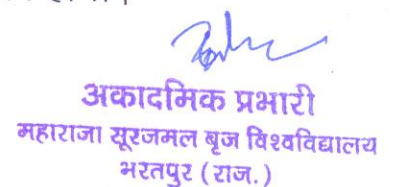 अकादमिक प्रभारी
महाराजा सूरजमल बृज विश्वविद्यालय
भरतपुर (राज.)